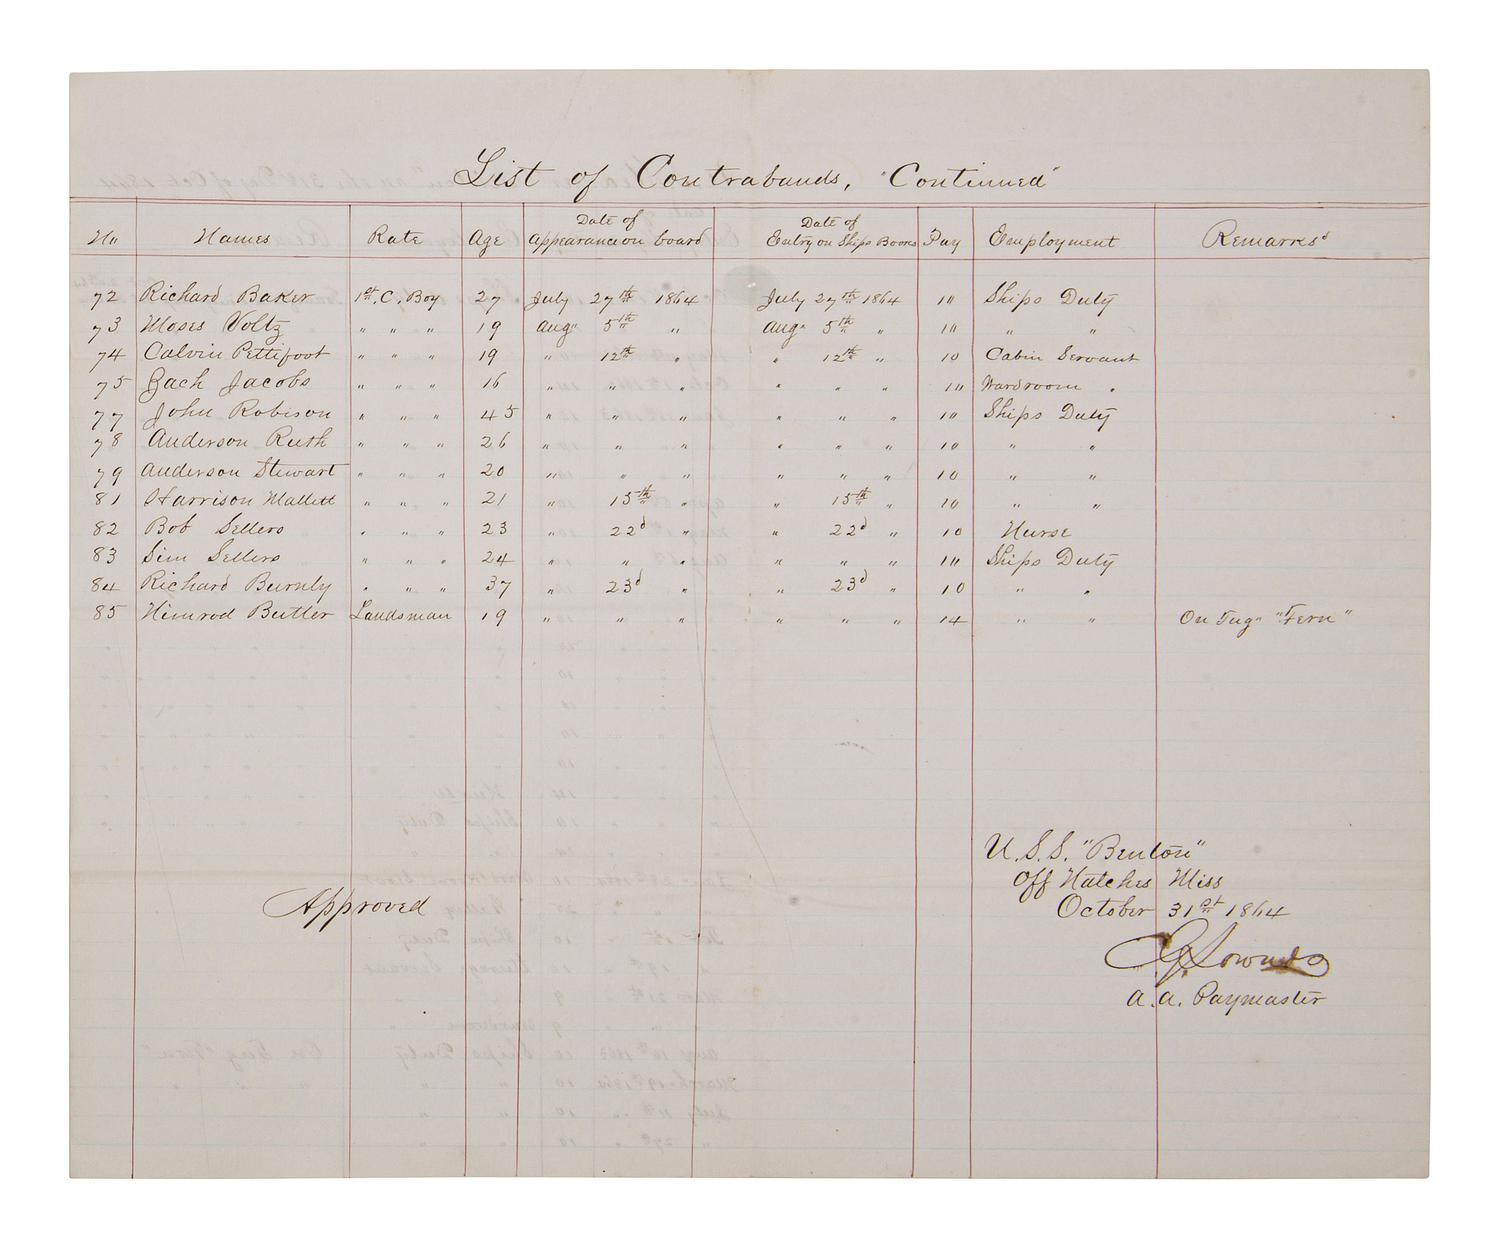 List of Contrabands, "Continued"
No Names Rate Age Date of appearance on board Date of Entry on Ships Books Pay Employment Remarks
72 Richard Baker 1st. C. Boy 27 July 27th 1864 July 27th 1864 10 Ships Duty
73 Moses Voltz " " " 19 Aug" 5th " Aug" 5th " 10 " "
74 Calvin Pettifoot " " " 19 " 12th " " 12th " 10 Cabin Servant
75 Zach Jacobs " " " 16 " " " " " " 10 Wardroom "
77 John Robison " " " 45 " " " " " " 10 Ships Duty
78 Anderson Ruth " " " 26 " " " " " " 10 " "
79 Anderson Stewart " " " 20 " " " " " " 10 " "
81 Harrison Mallett " " " 21 " 15th " " 15th " 10 " "
82 Bob Sellers " " " 23 " 22d " " 22d " 10 Nurse
83 Sim Sellers " " " 24 " " " " " " 10 Ships Duty
84 Richard Burnly " " " 37 " 23d " " 23d " 10 " "
85 Nimrod Butler Landsman 19 " " " " " " 14 " " On Tug" "Fern"
U.S.S. "Benton"
Off Natches Miss
October 31st 1864
Approved
A.A. Paymaster